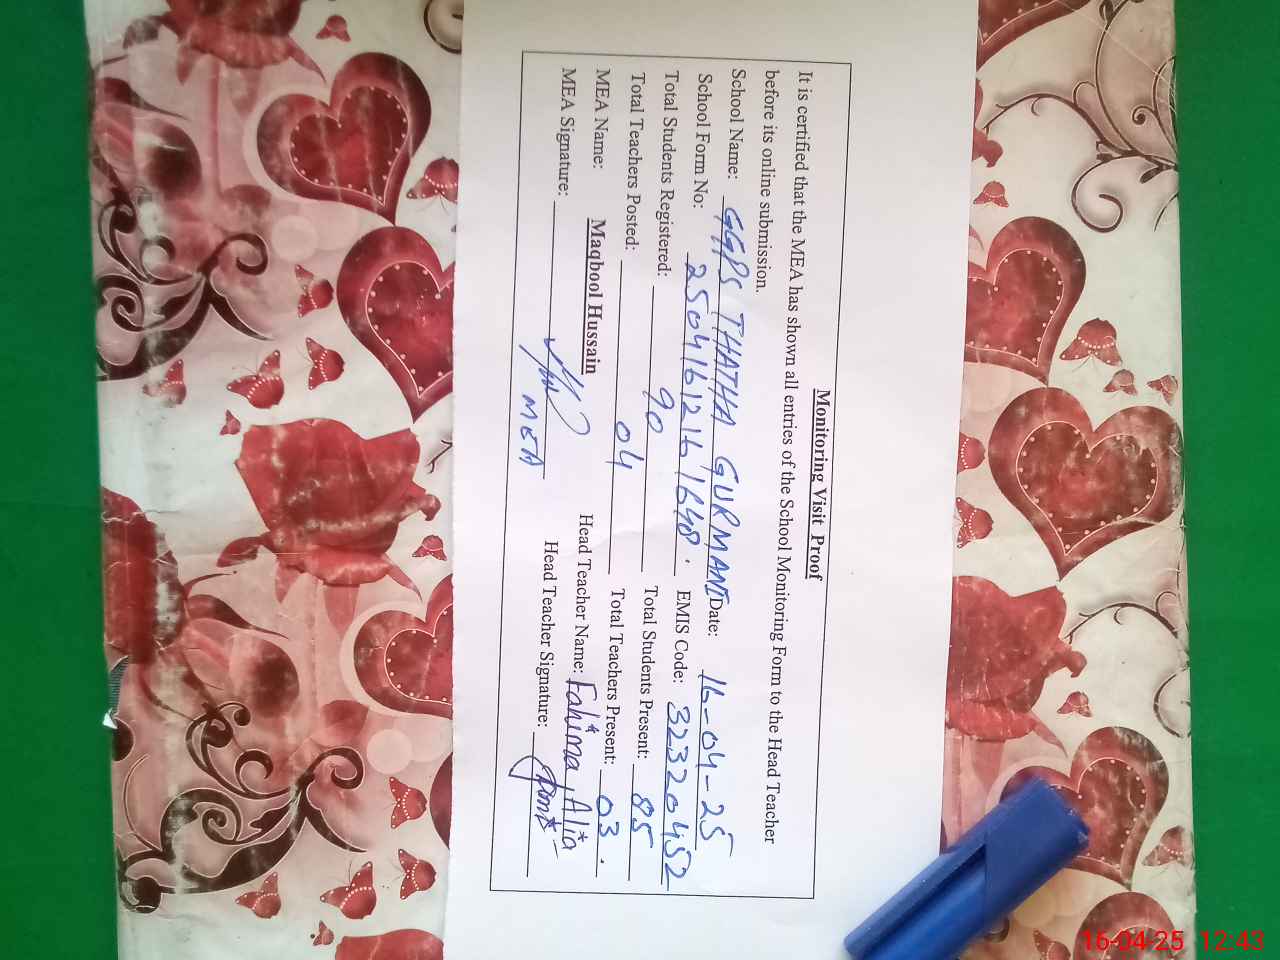 Monitoring Visit Proof
It is certified that the MEA has shown all entries of the School Monitoring Form to the Head Teacher
before its online submission.
School Name: GGPS THATHA GURMANI Date: 16-04-25
School Form No: 25041612161648. EMIS Code: 32320452
Total Students Registered: 90 Total Students Present: 85
Total Teachers Posted: 04 Total Teachers Present: 03.
MEA Name: Maqbool Hussain Head Teacher Name: Fahima Alia
MEA Signature: Head Teacher Signature:
MEA
16-04-25 12:43